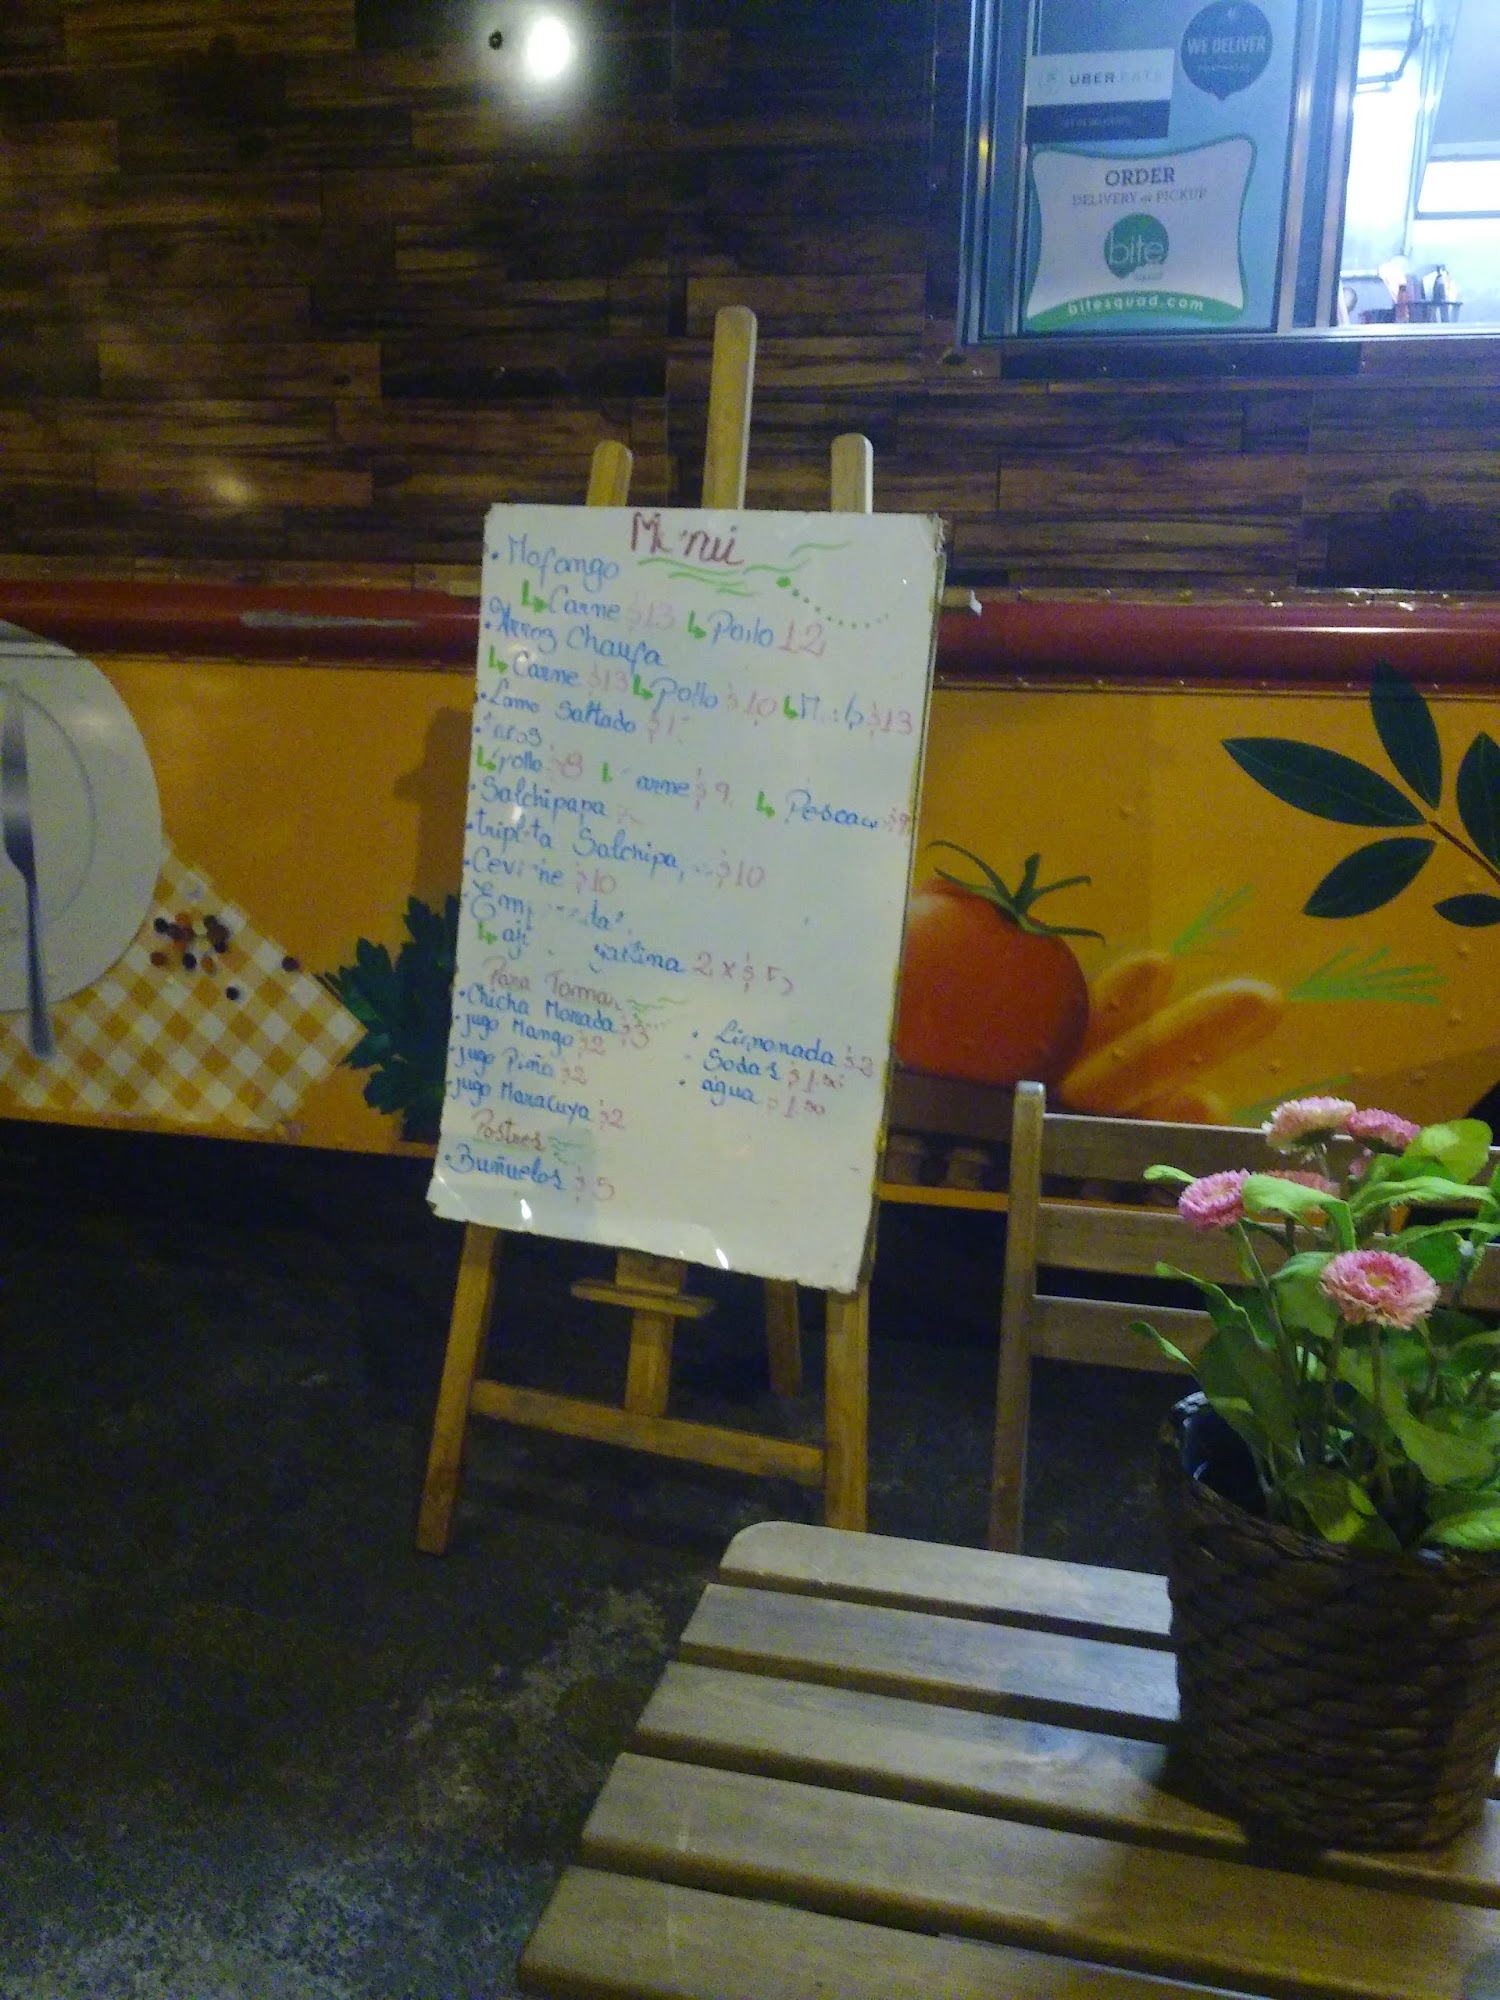 UBER EATS
WE DELIVER
ORDER
DELIVERY or PICKUP
bite
squad
bitesquad.com
Menú
• Mofongo
Carne $13 Pollo 12
• Arroz Chaufa
Carne $13 Pollo $10 $13
• Lomo Saltado
pollo $8 carne $9 Pescado $9
• Salchipapa
• tripleta Salchipapa $10
• Ceviche $10
• Empanadas
aji gallina 2 x $5
Para Tomar
• Chicha Morada $3
• jugo Mango $2
• jugo Piña $2
• jugo Maracuya $2
• Limonada $2
• Sodas $1.50
• agua $1.50
Postres
• Buñuelos $5